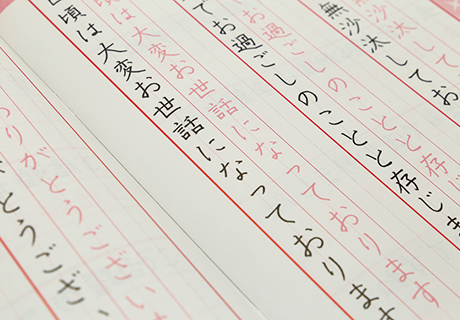 沙汰してお
無沙汰してお
お過ごしのことと存じ
てお過ごしのことと存じま
頃は大変お世話になっております
頃は大変お世話になっております
りがとうござい
とうござい